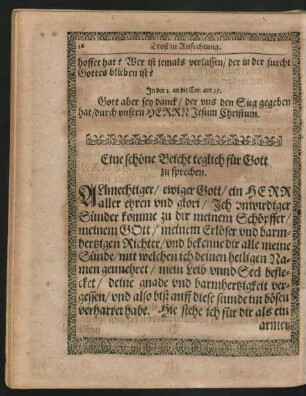 16 Trost in Anfechtung.
hoffet hat? Wer ist jemals verlassen/ der in der furcht
Gottes blieben ist?
In der 1. an die Cor. am 15.
Gott aber sey danck/ der vns den Sieg gegeben
hat/durch vnsern HERRN Jesum Christum.
Eine schöne Beicht teglich für Gott
zu sprechen.
ALlmechtiger/ ewiger Gott/ ein HERR
aller ehren vnd glori/ Ich vnwirdiger
Sünder komme zu dir meinem Schöpffer/
meinem GOtt/ meinem Erlöser vnd barm-
hertzigen Richter/ vnd bekenne dir alle meine
Sünde/ mit welchen ich deinen heiligen Na-
men geunehret/ mein Leib vnnd Seel befle-
cket/ deine gnade vnd barmhertzigkeit ver-
gessen/ vnd also biß auff diese stunde im bösen
verharret habe. Hie stehe ich für dir als ein
armer